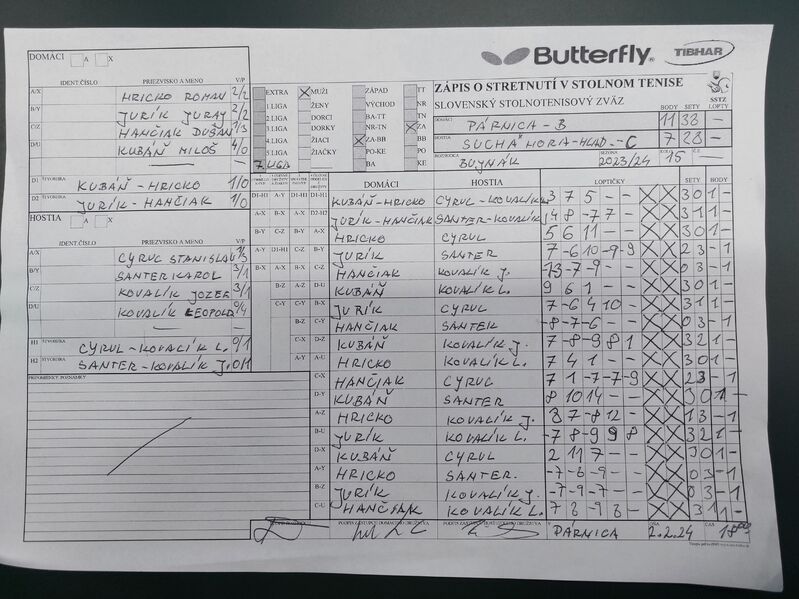 DOMÁCI A X
IDENT.ČÍSLO PRIEZVISKO A MENO V/P
A/X HRICKO ROMAN 2/2
B/Y JURÍK JURAY 2/2
C/Z HANČIAK DUŠAN 1/3
D/U KUBÁŇ MILOŠ 4/0
D1 ŠTVORHRA KUBÁŇ-HRICKO 1/0
D2 ŠTVORHRA JURÍK-HANČIAK 1/0
HOSTIA A X
IDENT.ČÍSLO PRIEZVISKO A MENO V/P
A/X CYRUL STANISLAV 1/3
B/Y SANTER KAROL 3/1
C/Z KOVALÍK JOZEF 3/1
D/U KOVALÍK LEOPOLD 0/4
H1 ŠTVORHRA CYRUL-KOVALÍK L. 0/1
H2 ŠTVORHRA SANTER-KOVALÍK J. 0/1
PRIPOMIENKY, POZNÁMKY
Butterfly TIBHAR
EXTRA MUŽI ZÁPAD TT
1 LIGA ŽENY VÝCHOD NR
2.LIGA DORCI BA-TT ZA
3.LIGA DORKY NR-TN BB
4.LIGA ŽIACI ZA-BB PO
5.LIGA ŽIAČKY PO-KE KE
7.LIGA BA
ZÁPIS O STRETNUTÍ V STOLNOM TENISE
SLOVENSKÝ STOLNOTENISOVÝ ZVÄZ
SSTZ
BODY SETY LOPTY
DOMÁCI PÁRNICA-B 11 38 -
HOSTIA SUCHÁ HORA-HLAD.-C 7 28 -
ROZHODCA BUJNÁK SEZÓNA 2023/24 KOLO 15 -
DOMÁCI HOSTIA LOPTIČKY SETY BODY
KUBÁŇ-HRICKO CYRUL-KOVALÍK L. 3 7 5 - - X X 3 0 1 -
JURÍK-HANČIAK SANTER-KOVALÍK J. 14 8 -7 7 - X X 3 1 1 -
HRICKO CYRUL 5 6 11 - - X X 3 0 1 -
JURÍK SANTER 7 -6 10 -9 -9 X X 2 3 - 1
HANČIAK KOVALÍK J. -13 -7 -9 - - X X 0 3 - 1
KUBÁŇ KOVALÍK L. 9 6 1 - - X X 3 0 1 -
JURÍK CYRUL 7 -6 4 10 - X X 3 1 1 -
HANČIAK SANTER -8 -7 -6 - - X X 0 3 - 1
KUBÁŇ KOVALÍK J. 7 -8 -9 8 1 X X 3 2 1 -
HRICKO KOVALÍK L. 7 4 1 - - X X 3 0 1 -
HANČIAK CYRUL 7 1 -7 -7 -9 X X 2 3 - 1
KUBÁŇ SANTER 8 10 14 - - X X 3 0 1 -
HRICKO KOVALÍK J. -8 12 - X X 1 3 - 1
JURÍK KOVALÍK L. -7 8 -9 9 8 X X 3 2 1 -
KUBÁŇ CYRUL 2 11 7 - - X X 3 0 1 -
HRICKO SANTER. -7 -6 -9 - - X X 0 3 - 1
JURÍK KOVALÍK J. -7 -9 -7 - - X X 0 3 - 1
HANČIAK KOVALÍK L. 7 8 -9 8 - X X 3 1 1 -
V PÁRNICA DŇA 2.2.24 ČAS 18 00